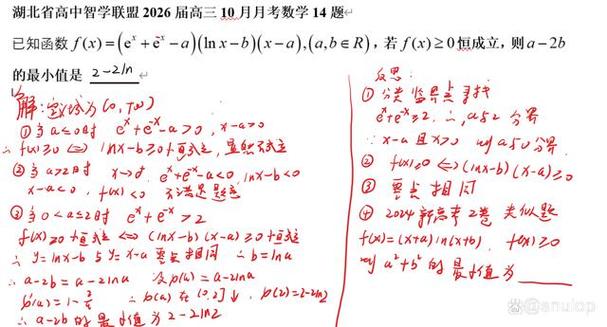 湖北省高中智学联盟 2026 届高三 10 月月考数学 14 题
已知函数 f(x)=(eˣ+e⁻ˣ-a)(ln x-b)(x-a),(a,b∈R)，若 f(x)≥0 恒成立，则 a-2b
的最小值是 2-2ln
解:定义域为(0,+∞)
①当a≤0时 eˣ+e⁻ˣ-a>0, x-a>0
∴f(x)≥0 ⇔ lnx-b≥0恒成立,显然不成立
②当a>2时 x→0⁺ eˣ+e⁻ˣ-a<0, lnx-b<0
x-a<0, f(x)<0 不满足题意
③当0<a≤2时 eˣ+e⁻ˣ>2
f(x)≥0恒成立 ⇔ (lnx-b)(x-a)≥0恒成立
∴y=lnx-b与y=x-a零点相同 ∴b=lna
∴a-2b=a-2lna 设p(a)=a-2lna
p'(a)=1-2/a ∴p(a)在(0,2]↓ p(2)=2-2ln2
∴a-2b的最小值为2-2ln2
反思:
①分类 临界点寻找
eˣ+e⁻ˣ≥2 ∴a≤2分界
∵x-a且x>0 则a≤0分界
②f(x)≥0 ⇔ (lnx-b)(x-a)≥0
③零点相同
④2024新高考2卷 类似题
f(x)=(x+a)ln(x+b), f(x)≥0
则a²+b²的最小值为
@anulop